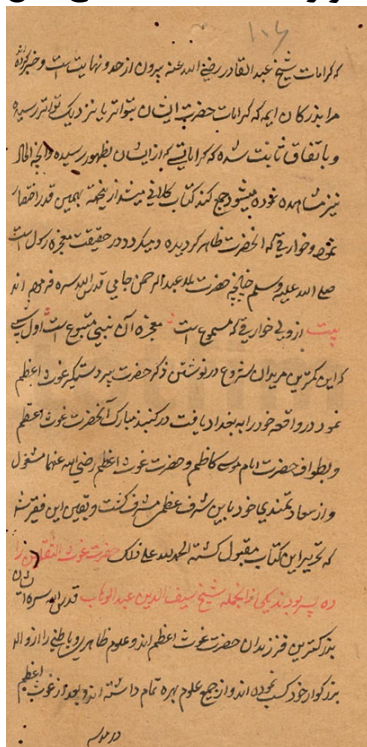 ۱۰۶
که کرامات شیخ عبدالقادر رضی الله عنه بیرون از حد و نهایت است و خبر کرده
مرا بزرکان ایمه که کرامات حضرت ایشان بتواتر یا نزدیک بتواتر رسیده
و باتفاق ثابت شده که کراماتیکه از ایشان بظهور رسیده و آنچه الحال
نیز مشاهده نموده میشود جمع کند کتاب کلانی میشد ازینجهة بهمین قدر اختصار
نموده و خوارقی که از آنحضرت ظاهر کردیده و میکردد در حقیقت معجزه رسول است
صلی الله علیه وسلم چنانچه حضرت ملا عبدالرحمن جامی قدس الله سره فرموده اند
بیت از ولی خوارقی که مسموع است معجزه آن نبی متبوع است اول کسی
که این کمترین مریدان شروع در نوشتن ذکر حضرت پیر دستکیر غوث اعظم
نمود در واقعه خود را به بغداد یافت در کنبد مبارک آنحضرت غوث اعظم
و بطواف حضرت امام موسی کاظم و حضرت غوث اعظم رضی الله عنهما مشغول
و از سعادتمندی خود باین شرف عظمی مشرف کشت و یقین این فقیر شد
که تحریر این کتاب مقبول کشته الحمد لله علی ذلک حضرت غوث الثقلین را
ده پسر بودند یکی از آنجمله شیخ سیف الدین عبدالوهاب قدس الله سره ایشان
بزرکترین فرزندان حضرت غوث اعظم اند و علوم ظاهری و باطنی را از والد
بزرکوار خود کسب نموده اند و از جمیع علوم بهره تمام داشته اند و بعد از غوث اعظم
در مدرسه